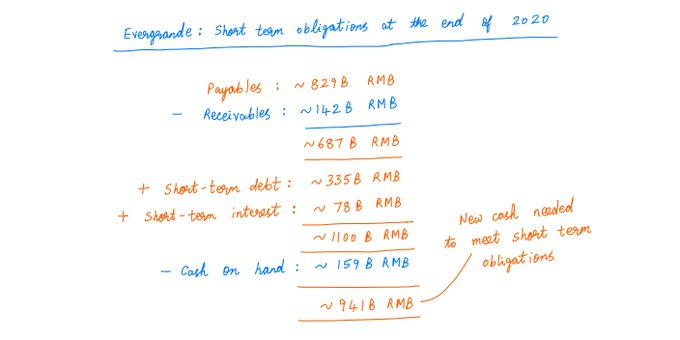 Evergrande: Short term obligations at the end of 2020
Payables: ~829B RMB
- Receivables: ~142B RMB
~687B RMB
+ Short-term debt: ~335B RMB
+ Short-term interest: ~78B RMB
~1100B RMB
- Cash on hand: ~159B RMB
~941B RMB
New cash needed
to meet short term
obligations